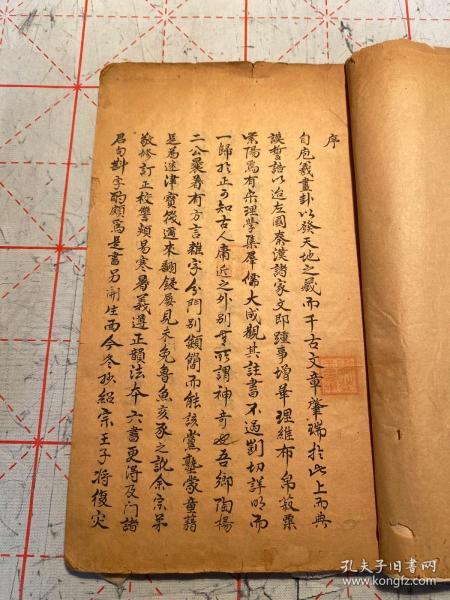 序
自庖羲畫卦以發天地之藏而千古文章肇瑞於此上而典
謨誓誥以迄左國秦漢諸家文即踵事增華理維布帛菽粟
紫陽為有宋理學集羣儒大成觀其註書不過剴切詳明而
一歸於正可知古人庸近之外別無所謂神奇也吾鄉陶楊
二公纂著有方言雜字分門別類簡而能該黨塾蒙童藉
是為迷津寶筏邇來翻錢屢見未免魯魚亥豕之訛余宗弟
敬修訂正校讐頻易寒暑義遵正韻法本六書更得及门諸
君句斟字酌頗為是書另開生面今冬抄紹宗王子将復災
孔夫子旧书网
www.kongfz.com